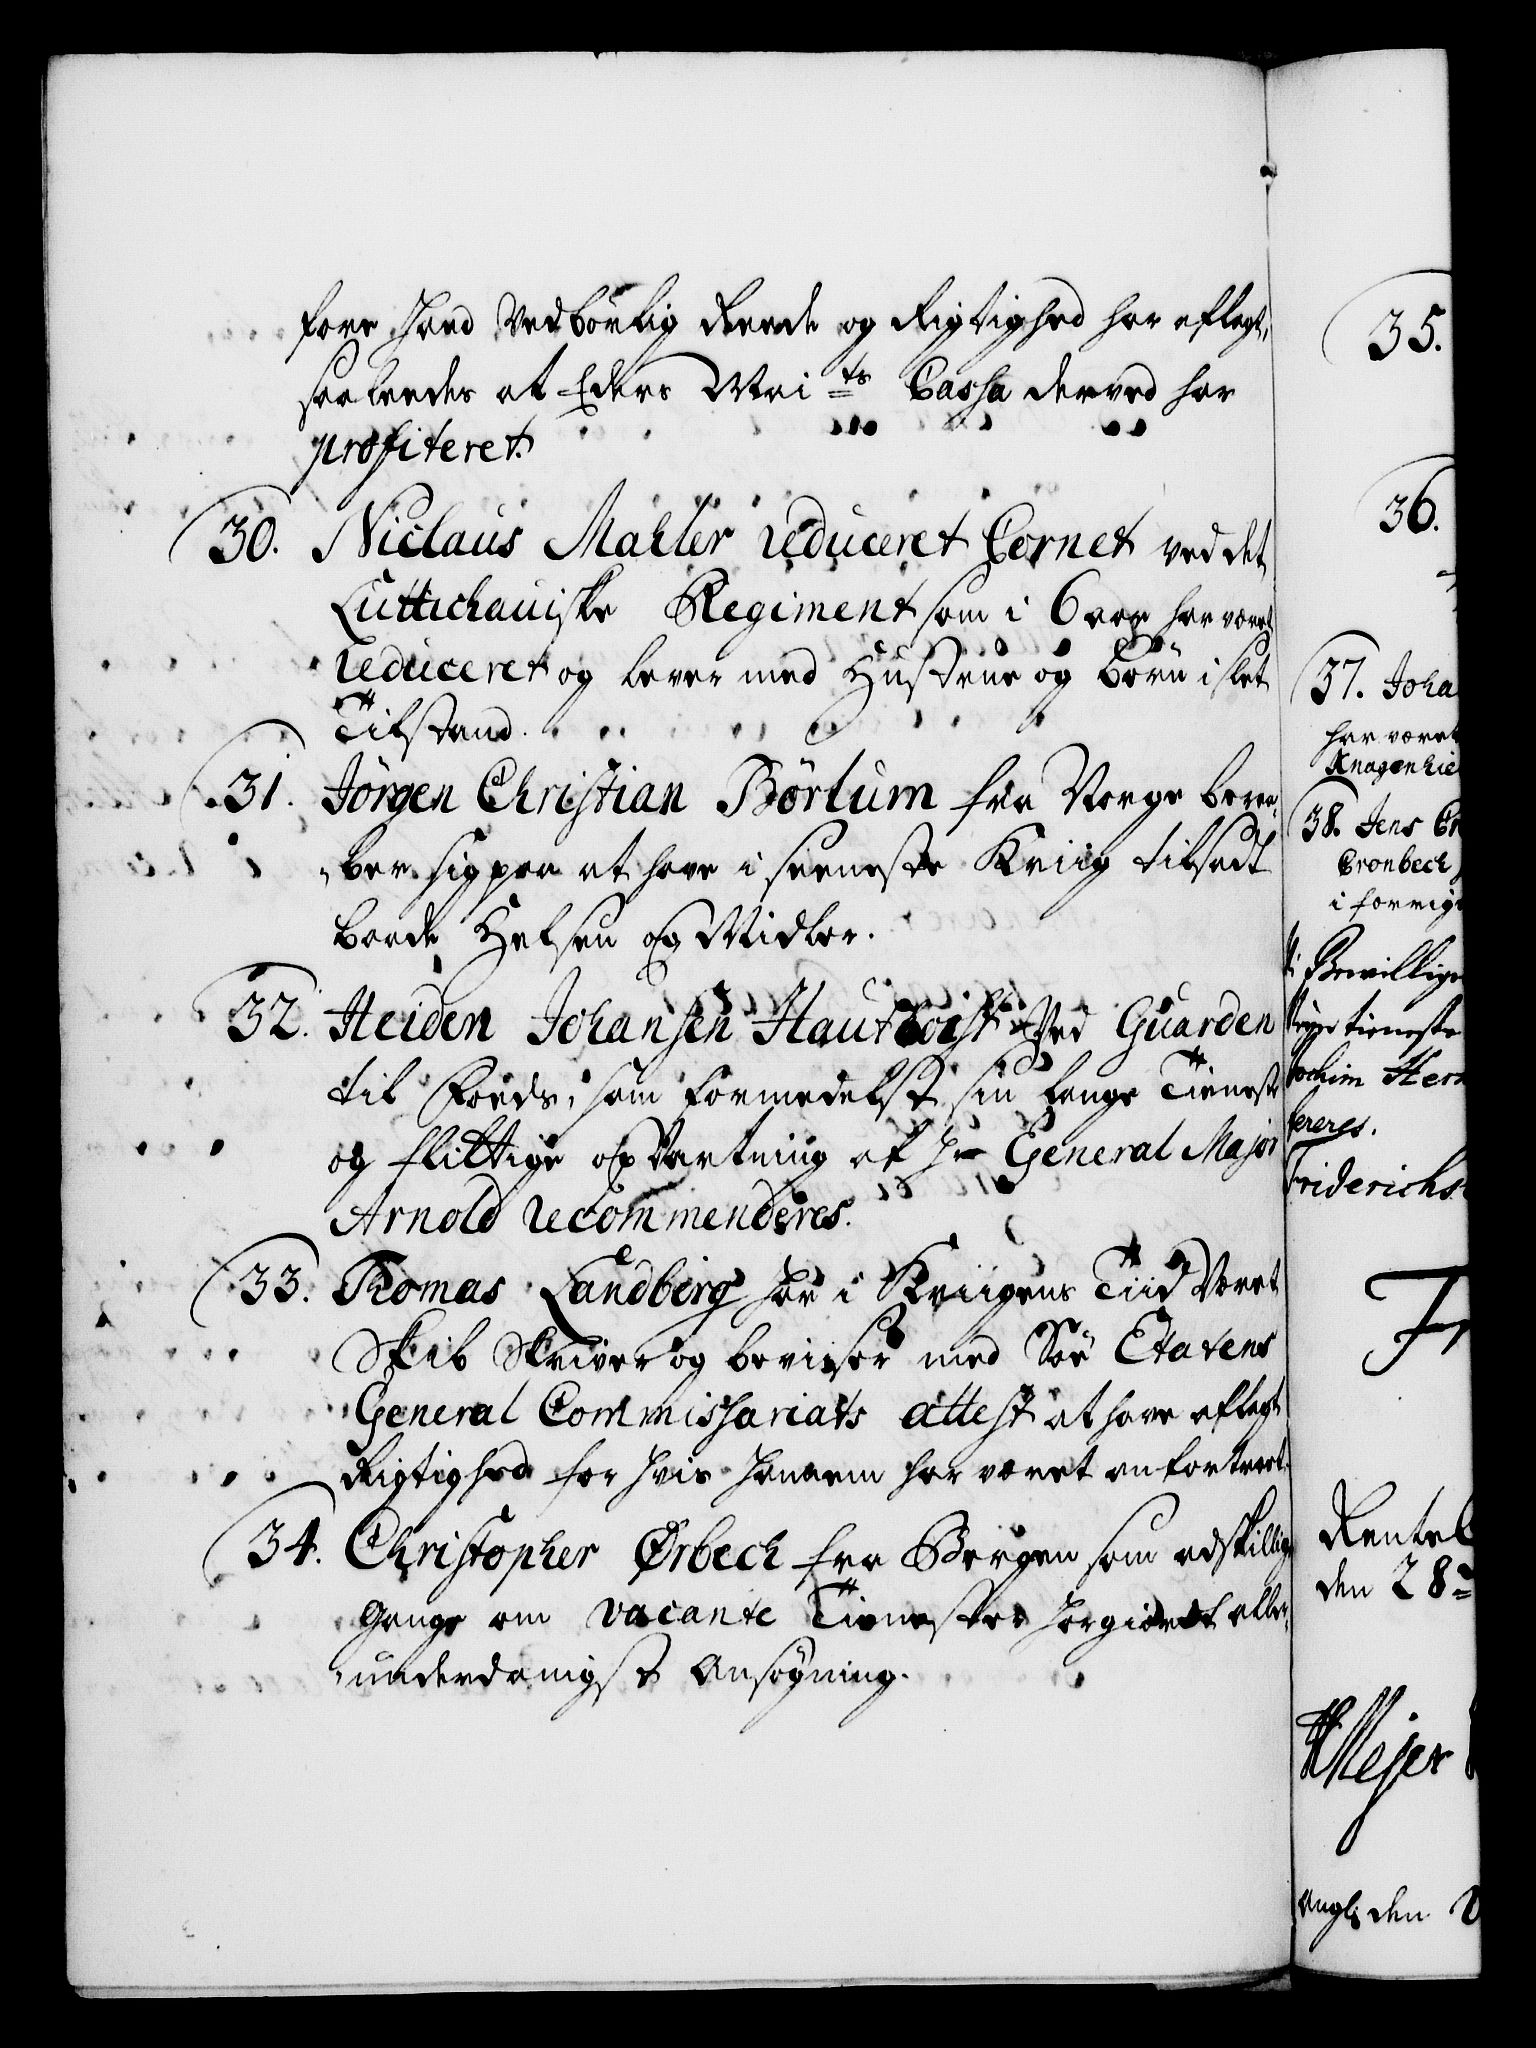 fore hand Vedbörlig Reede og Rigtighed har aflagt,
saaleedes at Eders Mai ts Cassa derved har
profiteret.
30. Niclaus Mahler reduceret Cornet ved det
Luttichauiske Regiment som i 6 aar har været
reduceret og lever med Hustrue og Börn i slet
Tilstand.
31. Jörgen Christian Börlum fra Norge beraa-
ber sig paa at have i seeneste Kriig tilsadt
baade Helsen og Midler.
32. Heiden Johansen Hautboist Ved Guarden
til Foeds, som formedelst sin lange Tieneste
og flittige opVartning af Hr General Major
Arnold recommenderes.
33. Thomas Landberg har i Kriigens Tiid Været
Skib Skriver og beviser med Söe Etatens
General Commissariats attest at have aflagt
Rigtighed for hvis hannem har været anfortroet.
34. Christopher Ørbech fra Bergen som adskillige
Gange om vacante Tienester har giort aller-
underdanigst Ansøgning.
35.
36.
37. Joha
har været
Knagenhie
38. Jens
Cronbech
i forrige
Bewillige
tieneste
Jochim Her
Friderichs
Rentek
den 28
Mejer
den